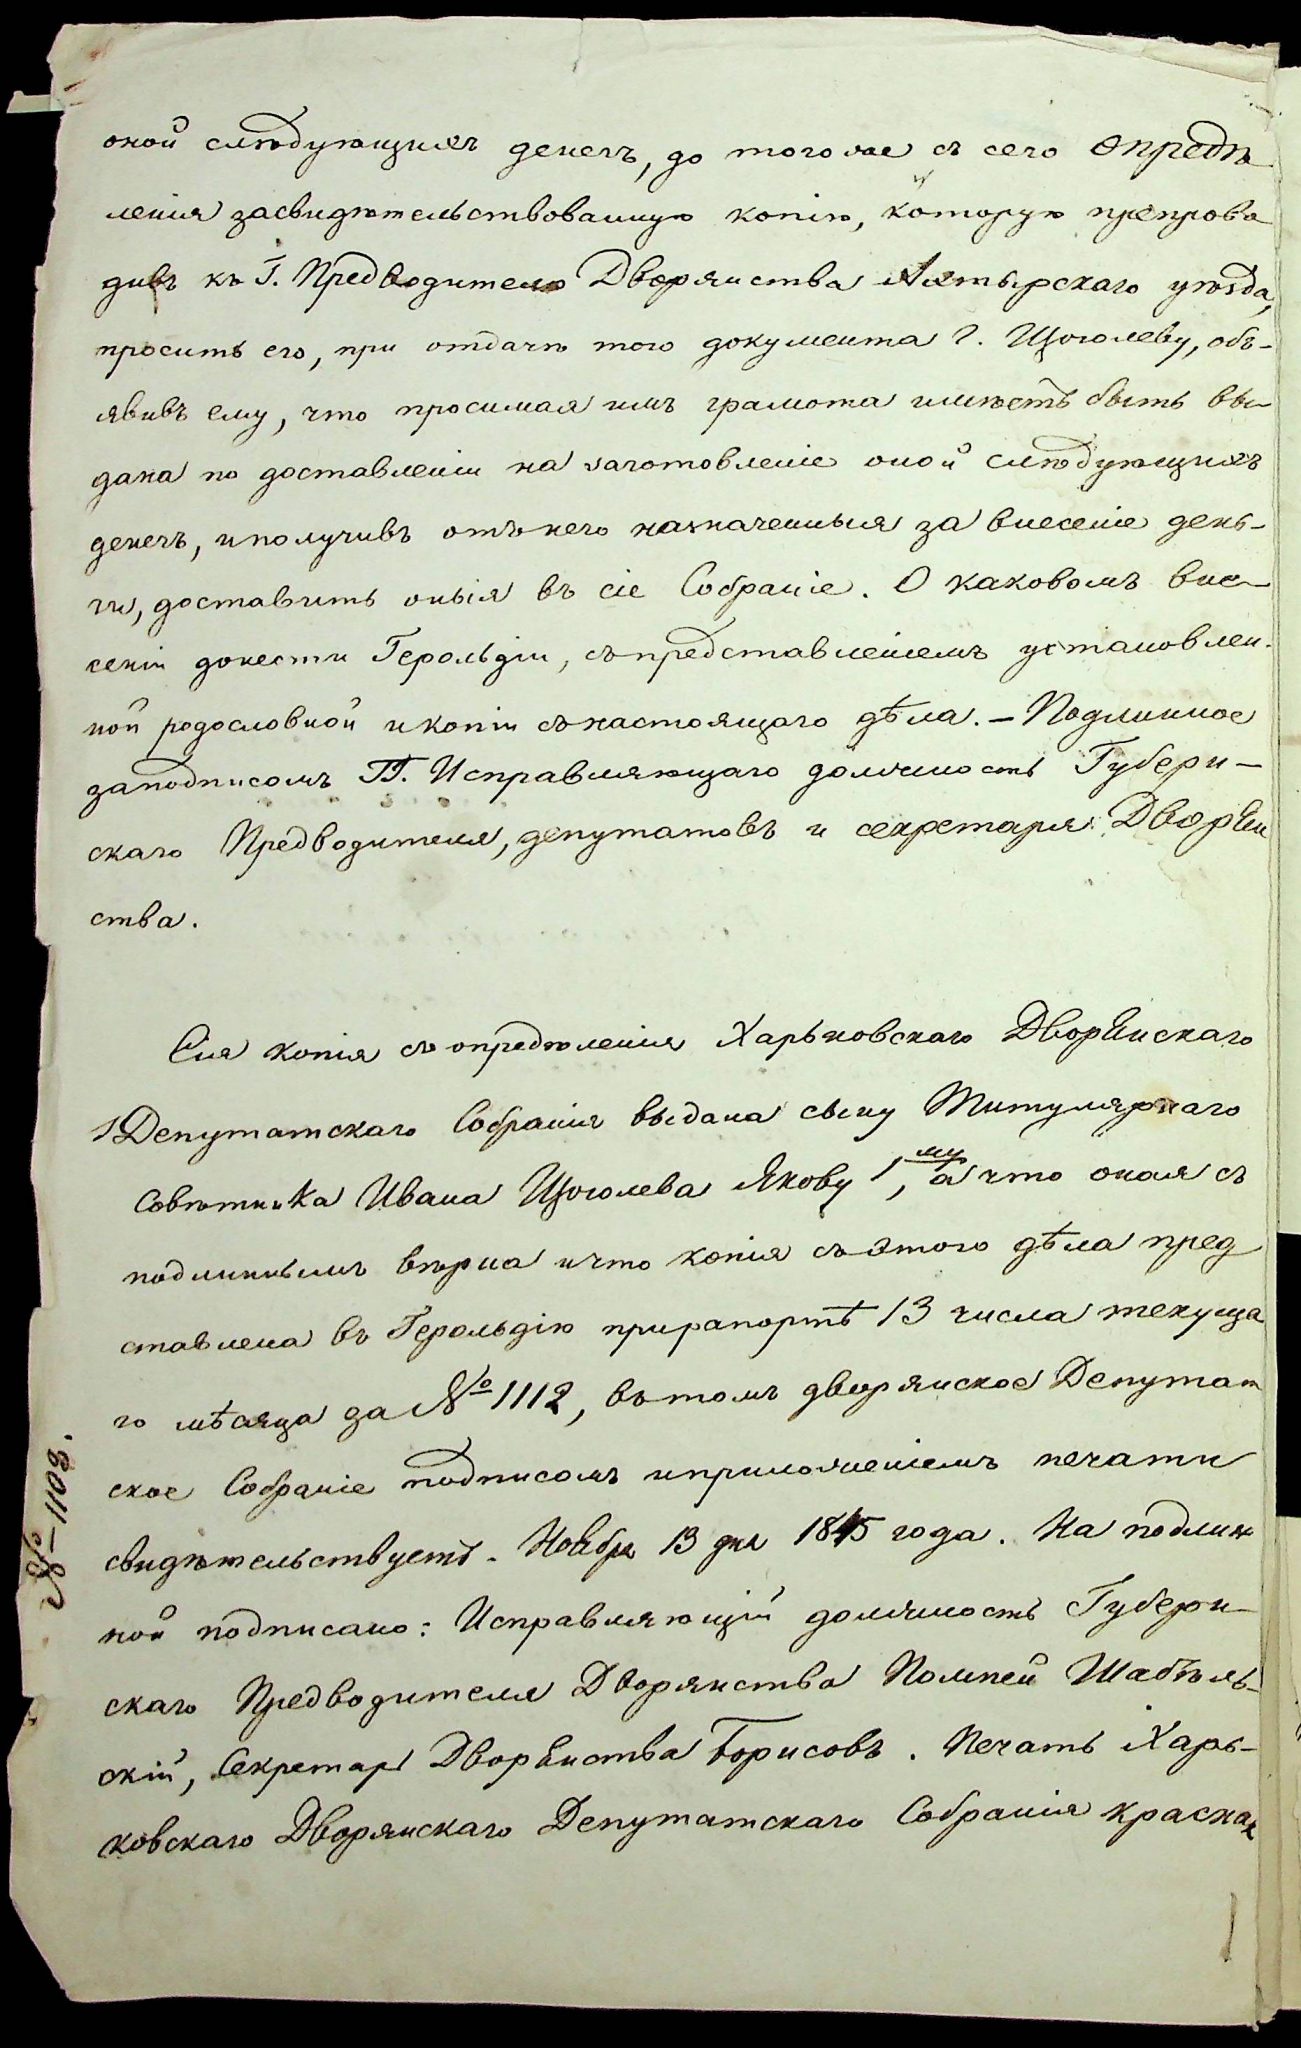 оной слѣдующихъ денегъ, до того же съ сего опредѣ
ленія засвидѣтельствованную копію, которую препрово
дивъ къ Г. Предводителю Дворянства Ахтырскаго уѣзда,
просить его, при отдачѣ того документа Г. Щоголеву, объ-
явивъ ему, что просимая имъ грамота имѣетъ быть вы
дана по доставленіи на заготовленіе оной слѣдующихъ
денегъ, и получивъ отъ него назначенныя за внесеніе день-
ги, доставить оныя въ сіе Собраніе. О каковомъ вне-
сеніи донести Герольдіи, съ представленіемъ установлен-
ной родословной и копіи съ настоящаго дѣла. – Подлинное
за подписомъ ГГ. Исправляющаго должность Губерн-
скаго Предводителя, депутатовъ и секретаря Дворян
ства.
Сія копія съ опредѣленія Харьковскаго Дворянскаго
Депутатскаго Собранія выдана сыну Титулярнаго
Совѣтника Ивана Щоголева Якову 1му, а что оная съ
подлиннымъ вѣрна и что копія съ этого дѣла пред
ставлена въ Герольдію при рапортѣ 13 числа текуща
го мѣсяца за № 1112, въ томъ дворянское Депутат
ское Собраніе подписомъ и приложеніемъ печати
свидѣтельствуетъ. Ноября 13 дня 1845 года. На подлин
ной подписано: Исправляющій должность Губерн-
скаго Предводителя Дворянства Помпей Шабѣль-
скій, Секретарь Дворянства Борисовъ. Печать Харь-
ковскаго Дворянскаго Депутатскаго Собранія красная
№ – 1103.